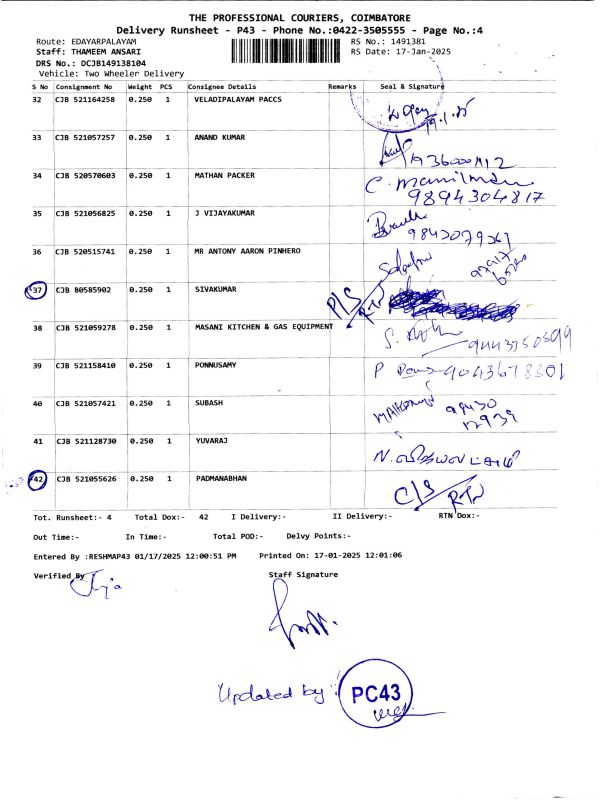 THE PROFESSIONAL COURIERS, COIMBATORE
Delivery Runsheet - P43 - Phone No.:0422-3505555 - Page No.:4
Route: EDAYARPALAYAM RS No.: 1491381
Staff: THAMEEM ANSARI RS Date: 17-Jan-2025
DRS No.: DCJB149138104
Vehicle: Two Wheeler Delivery
S No Consignment No Weight PCS Consignee Details Remarks Seal & Signature
32 CJB 521164258 0.250 1 VELADIPALAYAM PACCS
33 CJB 521057257 0.250 1 ANAND KUMAR
34 CJB 520570603 0.250 1 MATHAN PACKER
9894304817
35 CJB 521056825 0.250 1 J VIJAYAKUMAR
36 CJB 520515741 0.250 1 MR ANTONY AARON PINHERO
37 CJB 80585902 0.250 1 SIVAKUMAR P/S RTN
38 CJB 521059278 0.250 1 MASANI KITCHEN & GAS EQUIPMENT
39 CJB 521158410 0.250 1 PONNUSAMY
40 CJB 521057421 0.250 1 SUBASH
41 CJB 521128730 0.250 1 YUVARAJ
42 CJB 521055626 0.250 1 PADMANABHAN C/S RTN
Tot. Runsheet:- 4 Total Dox:- 42 I Delivery:- II Delivery:- RTN Dox:-
Out Time:- In Time:- Total POD:- Delvy Points:-
Entered By :RESHMAP43 01/17/2025 12:00:51 PM Printed On: 17-01-2025 12:01:06
Verified By Staff Signature
Updated by : PC43